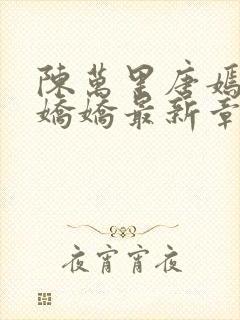 陳萬里唐嫣
嬌嬌最新章
夜宵宵夜